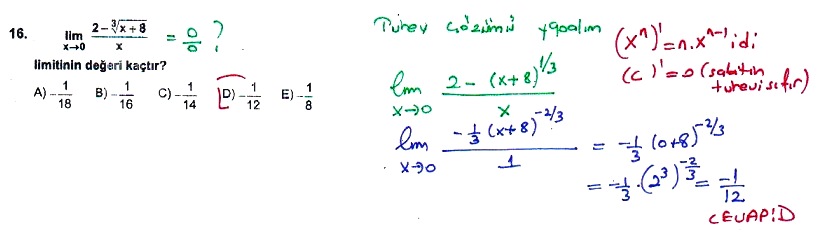 16. lim x→0 (2 - ∛(x + 8)) / x = 0/0 ?
limitinin değeri kaçtır?
A) -1/18 B) -1/16 C) -1/14 D) -1/12 E) -1/8
Türev çözümü yapalım
(xⁿ)' = n.xⁿ⁻¹ idi
(c)' = 0 (sabitin
türevi sıfır)
lim x→0 (2 - (x+8)^1/3) / x
lim x→0 (-1/3 (x+8)^-2/3) / 1 = -1/3 (0+8)^-2/3
= -1/3 . (2³)^-2/3 = -1/12
CEVAP D